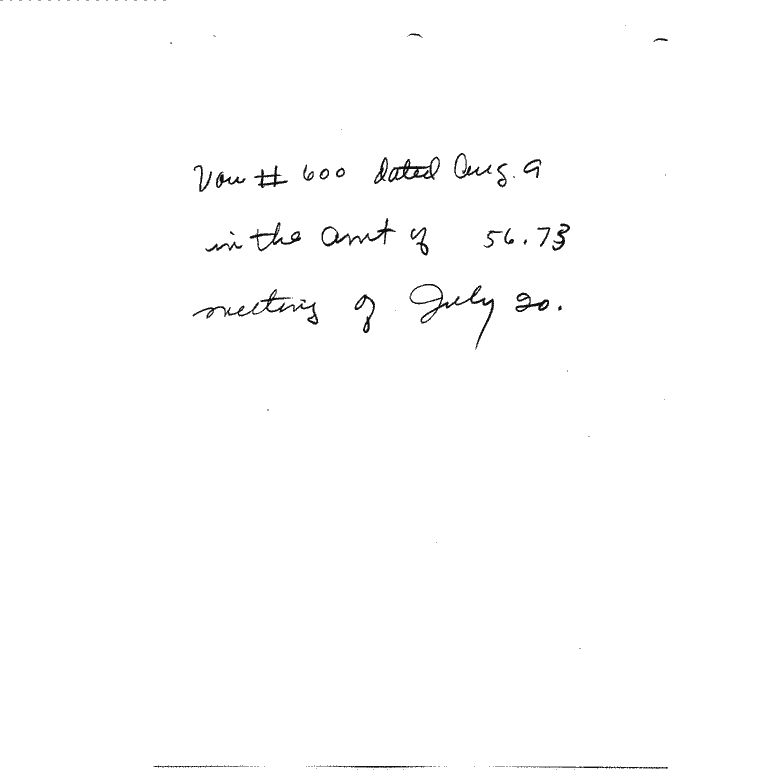 Vou # 600 dated Aug. 9
in the amt of 56.73
meeting of July 20.